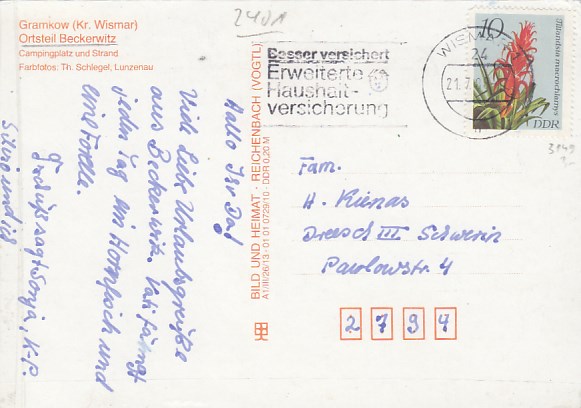 Gramkow (Kr. Wismar)
Ortsteil Beckerwitz
Campingplatz und Strand
Farbfotos: Th. Schlegel, Lunzenau
2401
Besser versichert
Erweiterte
Haushalt-
versicherung
WISMAR
24
21.7.
10
Tillandsia macrochlamys
DDR
3149
BILD UND HEIMAT · REICHENBACH (VOGTL)
A1/III/26/13 · 01 01 0729/10 · DDR 0,20 M
Hallo Ihr
Viele liebe Urlaubsgrüße
aus Beckerwitz. Vati fängt
jeden Tag ein Hornfisch und
eine Forelle.
sagt Sonja, K-P.
und ich
Fam.
H. Kienas
Dreesch III Schwerin
Pawlowstr. 4
2 7 9 4